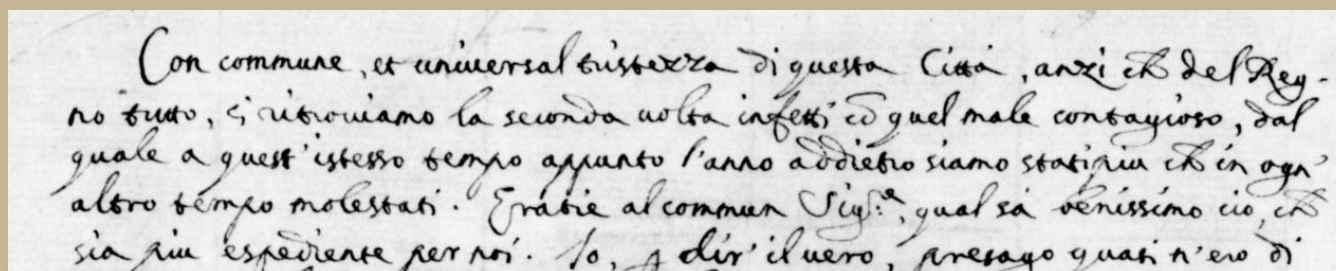 Con commune, et universal tristezza di questa Città, anzi ch̃ del Reg-
no tutto, ci ritroviamo la seconda uolta infetti cõ quel male contagioso, dal
quale a quest'istesso tempo appunto l'anno addietro siamo stati piu ch̃ in ogn'
altro tempo molestati. Gratie al commun Sig.re, qual sà benissimo ciò, ch̃
sia piu espediente per noi. Io, p dir'il uero, presago quasi n'ero di